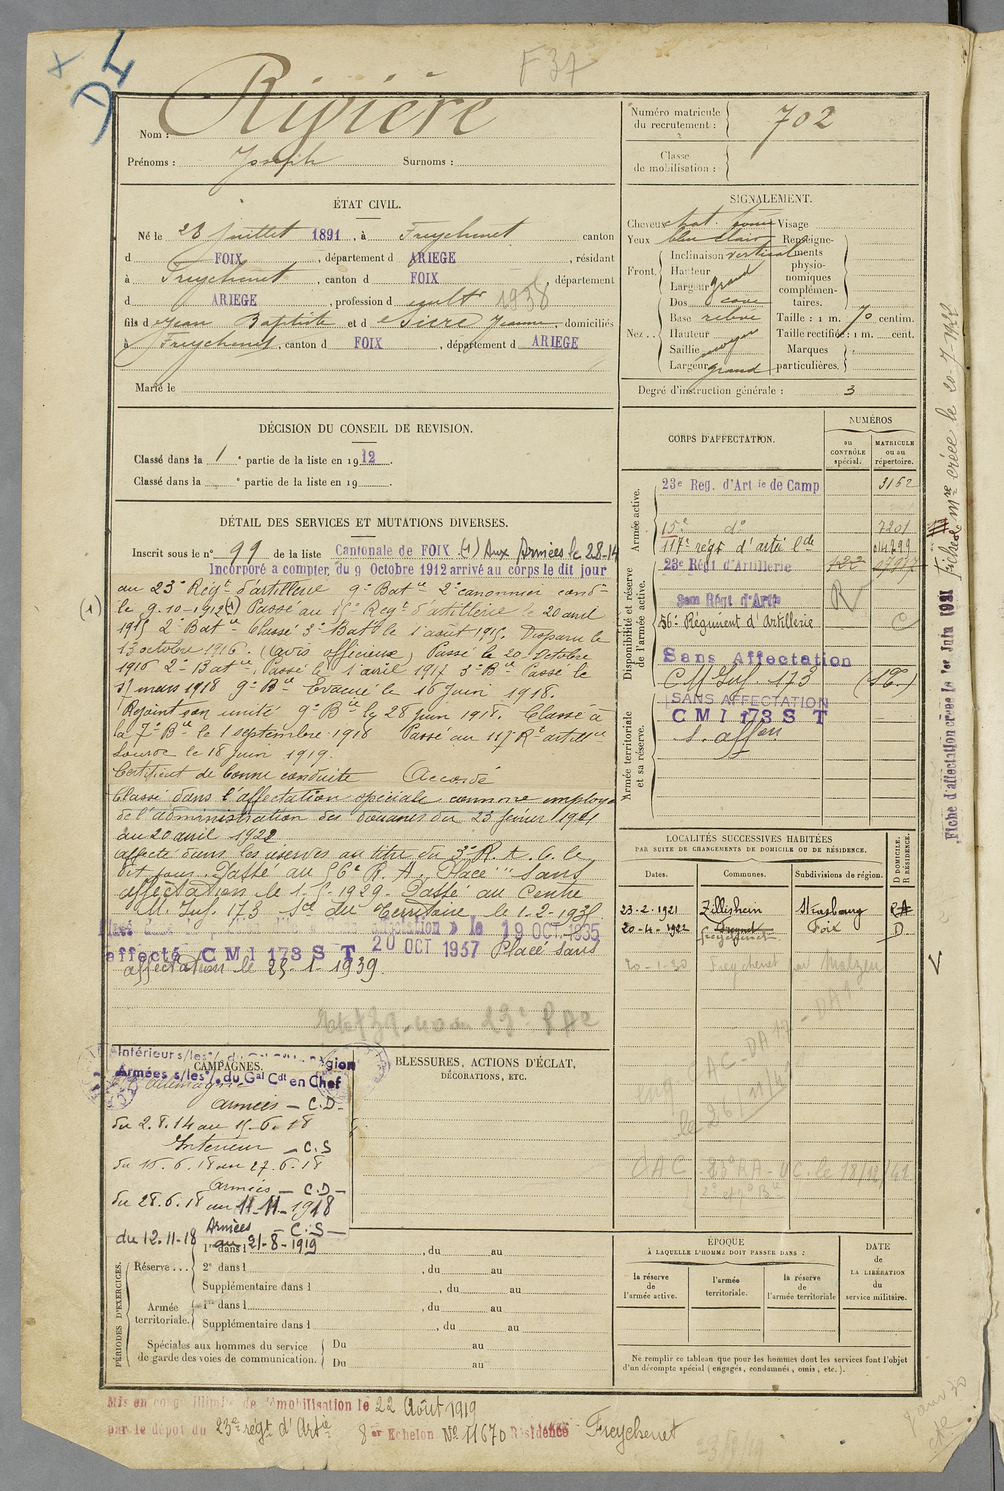 F 37
DI
Nom : Rivière
Prénoms : Joseph Surnoms :
Numéro matricule
du recrutement : 702
Classe
de mobilisation :
ÉTAT CIVIL.
Né le 23 juillet 1891, à Freychenet canton
d FOIX, département d ARIEGE, résidant
à Freychenet, canton d FOIX, département
d ARIEGE, profession d cultr 1938
fils d Jean Baptiste et d Sicre Jeanne, domiciliés
à Freychenet, canton d FOIX, département d ARIEGE
Marié le
SIGNALEMENT.
Cheveux chat. Visage
Yeux bleu clair Renseigne-
ments
physio-
nomiques
complémen-
taires.
Front. Inclinaison vertical
Hauteur
Largeur grand
Nez .. Dos cave
Base relevé Taille : 1 m. 70 centim.
Hauteur Taille rectifiée : 1 m. cent.
Saillie moyen Marques
Largeur grand particulières.
Degré d'instruction générale : 3
DÉCISION DU CONSEIL DE REVISION.
Classé dans la 1e partie de la liste en 1912.
Classé dans la e partie de la liste en 19 .
DÉTAIL DES SERVICES ET MUTATIONS DIVERSES.
Inscrit sous le n° 99 de la liste Cantonale de FOIX (1) Aux Armées le 28-14
Incorporé a compter du 9 Octobre 1912 arrivé au corps le dit jour
au 23e Régt d'artillerie 9e Batie 2e canonnier condr
(1) le 9-10-1912 (1) Passé au 15e Régt d'artillerie le 20 avril
1915 2e Batie Classé 3e Batie le 1 août 1915. Disparu le
13 octobre 1916. (avis officieux) Passé le 20 octobre
1916 2e Batie. Passé le 1 avril 1917 3e Bie Passé le
17 mars 1918 9e Bie Evacué le 16 juin 1918.
Rejoint son unité 9e Bie le 28 juin 1918. Classé à
la 7e Bie le 1 septembre 1918 Passé au 117e Rt artillie
lourde le 18 juin 1919.
Certificat de bonne conduite Accordé
Classé dans l'affectation spéciale comme employé
de l'administration des douanes du 23 février 1921
au 20 avril 1922
affecté dans les réserves au titre du 3e R. A. C. le
dit jour. Passé au 56e R. A. Placé "Sans
affectation le 1-5-1929. Passé au Centre
M. Inf. 173 Sct du Territoire le 1-2-1935
19 OCT 1935
affecté CMI 173 ST 20 OCT 1937 Placé sans
affectation le 25-1-1939.
CORPS D'AFFECTATION.
NUMÉROS
au
CONTRÔLE
spécial.
MATRICULE
ou au
répertoire.
Armée active.
23e Reg. d'Artie de Camp 3162
15e do 7201
117e régt d'artie lde 14799
Disponibilité et réserve
de l'armée active.
23e Régt d'Artillerie 122
Sem Régt d'Artie R
56e Régiment d'Artillerie C
Sans Affectation
C M Inf. 173 (St.)
Armée territoriale
et sa réserve.
SANS AFFECTATION
CMI 173 ST
S. affon
Fiche d'affectation créée le 1er Juin 1921
Fiche mre créée le 20-7-1928
LOCALITÉS SUCCESSIVES HABITÉES
PAR SUITE DE CHANGEMENTS DE DOMICILE OU DE RÉSIDENCE.
Dates. Communes. Subdivisions de région. D DOMICILE. R RÉSIDENCE.
23-2-1921 Zillisheim Strasbourg R
20-4-1922 Freychenet Foix D.
20-1-30 Freychenet
le 26/11/41
OAC le 18/12/41
CAMPAGNES.
Intérieur s/les o/. du Région
Armées s/les o/. du Gal Cdt en Chef
Allemagne
Armées – C.D –
du 2.8.14 au 15-6-18
Intérieur – C.S
du 16.6.18 au 27.6.18
Armées – C.D –
du 28.6.18 au 11-11-1918
Armées – C.S –
du 12.11-18 au 21-8-1919
BLESSURES, ACTIONS D'ÉCLAT,
DÉCORATIONS, ETC.
PÉRIODES D'EXERCICES.
Réserve ... 1re dans l , du au
2e dans l , du au
Supplémentaire dans l , du au
Armée
territoriale. 1re dans l , du au
Supplémentaire dans l , du au
Spéciales aux hommes du service
de garde des voies de communication. Du au
Du au
ÉPOQUE
À LAQUELLE L'HOMME DOIT PASSER DANS :
la réserve
de
l'armée active.
l'armée
territoriale.
la réserve
de
l'armée territoriale
DATE
de
LA LIBÉRATION
du
service militaire.
Ne remplir ce tableau que pour les hommes dont les services font l'objet
d'un décompte spécial (engagés, condamnés, omis, etc.).
Mis en congé illimité de démobilisation le 22 Août 1919
par le dépôt du 23e régt d'Artie 8er Echelon No 11670 Résidence Freychenet